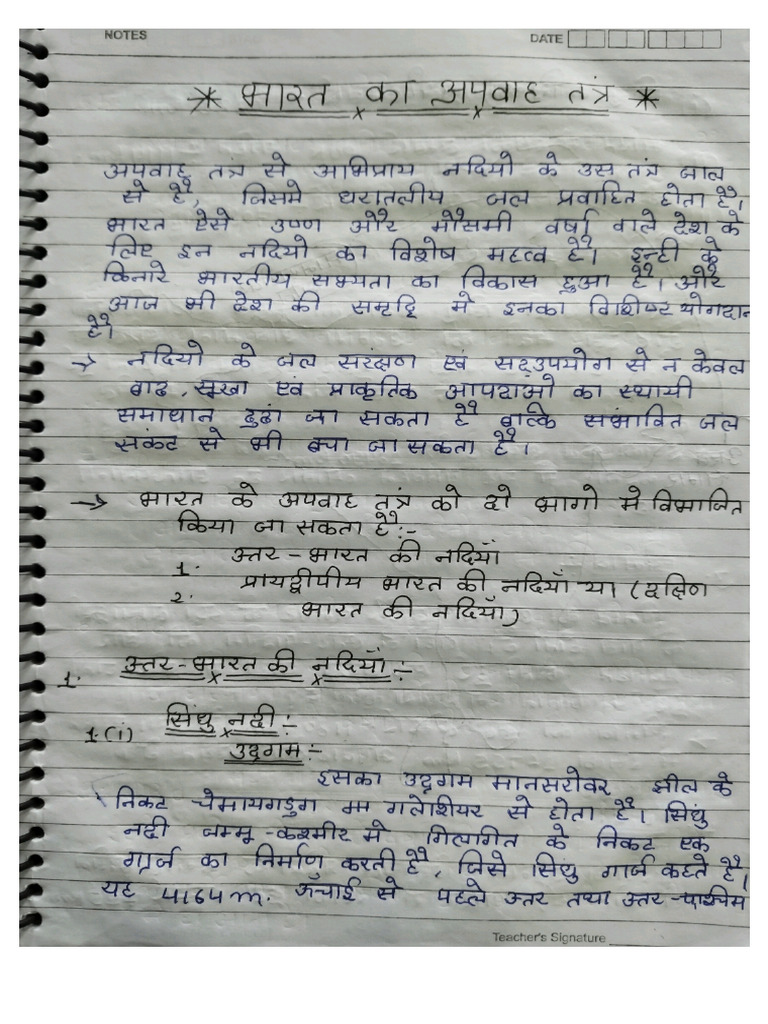 NOTES
DATE
* भारत का अपवाह तंत्र *
अपवाह तंत्र से अभिप्राय नदियो के उस तंत्र जाल
से है, जिसमे धरातलीय जल प्रवाहित होता है।
भारत ऐसे उष्ण और मौसमी वर्षा वाले देश के
लिए इन नदियो का विशेष महत्व है। इन्ही के
किनारे भारतीय सभ्यता का विकास हुआ है। और
आज भी देश की समृद्दि मे इनका विशिष्ट योगदान
है।
→ नदियो के जल सरंक्षण एवं सदउपयोग से न केवल
बाढ, सूखा एवं प्राकृतिक आपदाओ का स्थायी
समाधान ढुढां जा सकता है बल्कि संभावित जल
सकंट से भी बचा जा सकता है।
→ भारत के अपवाह तंत्र को दो भागो मे विभाजित
किया जा सकता है :-
1. उत्तर - भारत की नदियाँ
2. प्रायद्वीपीय भारत की नदियाँ या (दक्षिण
भारत की नदियाँ)
1. उत्तर-भारत की नदियाँ :-
1.(i) सिंधु नदी :-
उदगम :-
इसका उदगम मानसरोवर झील के
निकट चेमायगडुग गलेशियर से होता है। सिंधु
नदी जम्मू-कश्मीर मे गिलगित के निकट एक
गार्ज का निर्माण करती है, जिसे सिंधु गार्ज कहते है।
यह 4164m. ऊँचाई से पहले उत्तर तथा उत्तर-पश्चिम
Teacher's Signature